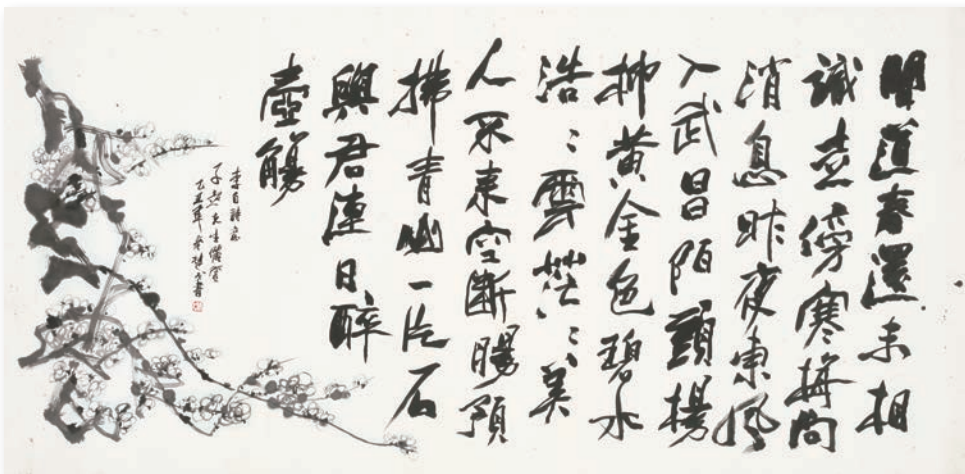 聞道春還未相
識走傍寒梅問
消息昨夜東風
入武昌陌頭楊
柳黄金色碧水
浩々雲茫々美
人不来空断腸預
拂青山一片石
與君連日醉
壺觴
李白詩意
子先生賞
乙丑年書